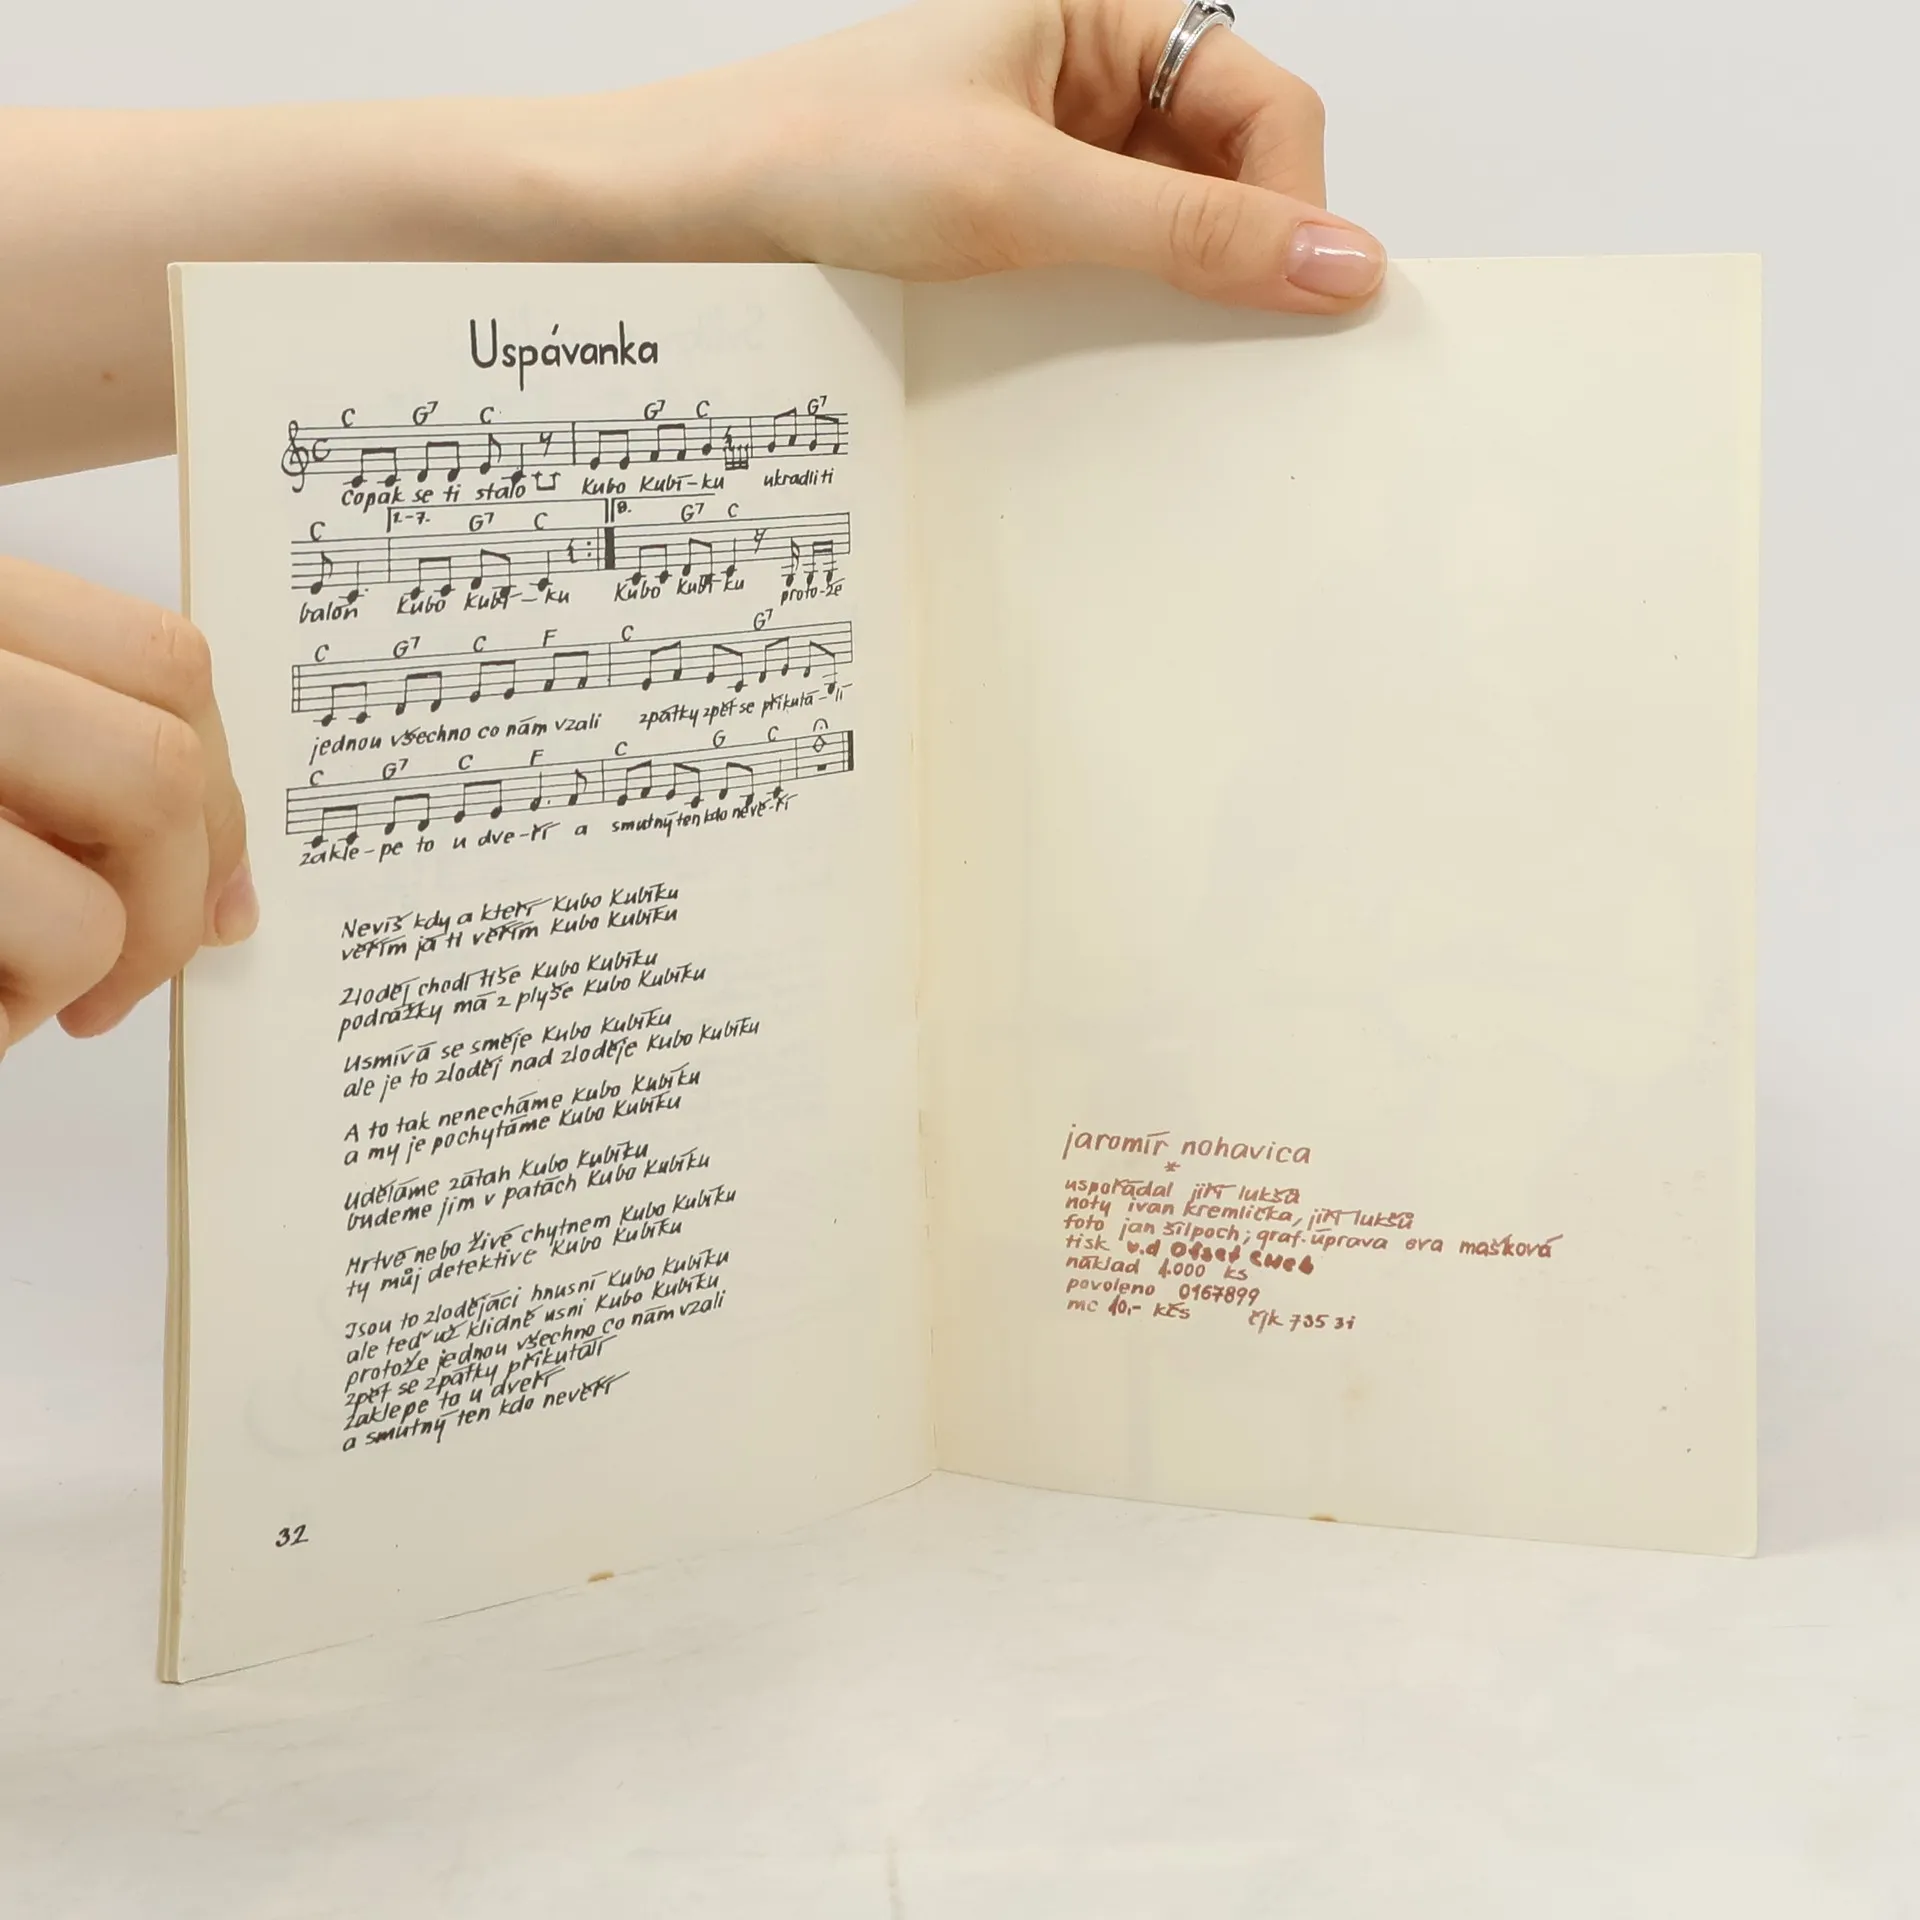 Uspávanka
C G7 C G7 C G7
copak se ti stalo Kubo Kubí-ku ukradli ti
C 1.-7. G7 C 8. G7 C
balón Kubo Kubí-ku Kubo Kubí ku proto-že
C G7 C F C G7
jednou všechno co nám vzali zpátky zpět se přikutá-lí
C G7 C F C G C
zakle-pe to u dve-ří a smutný ten kdo nevě-ří
Nevíš kdy a kteří Kubo Kubíku
věřím já ti věřím Kubo Kubíku
Zloděj chodí tiše Kubo Kubíku
podrážky má z plyše Kubo Kubíku
Usmívá se směje Kubo Kubíku
ale je to zloděj nad zloděje Kubo Kubíku
A to tak nenecháme Kubo Kubíku
a my je pochytáme Kubo Kubíku
Uděláme zátah Kubo Kubíku
budeme jim v patách Kubo Kubíku
Mrtvé nebo živé chytnem Kubo Kubíku
ty můj detektive Kubo Kubíku
Jsou to zlodějáci hnusní Kubo Kubíku
ale teď už klidně usni Kubo Kubíku
protože jednou všechno co nám vzali
zpět se zpátky přikutálí
zaklepe to u dveří
a smutný ten kdo nevěří
32
jaromír nohavica
*
uspořádal jiří lukšů
noty ivan kremlička, jiří lukšů
foto jan šilpoch; graf. úprava eva mašková
tisk v.d Ofset
náklad 1.000 ks
povoleno 0167899
mc 10,- kčs čjk 735 31